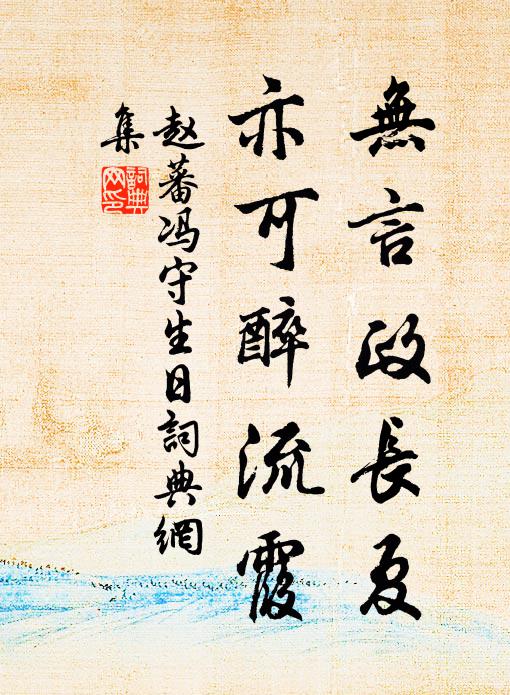 無言政長夏
亦可醉流霞
赵蕃冯守生日詞典網
集
詞典網印